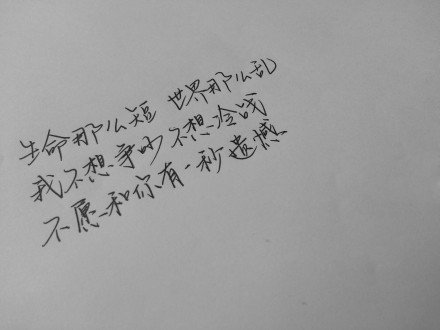 生命那么短 世界那么乱
我不想争吵不想冷战
不愿和你有一秒遗憾